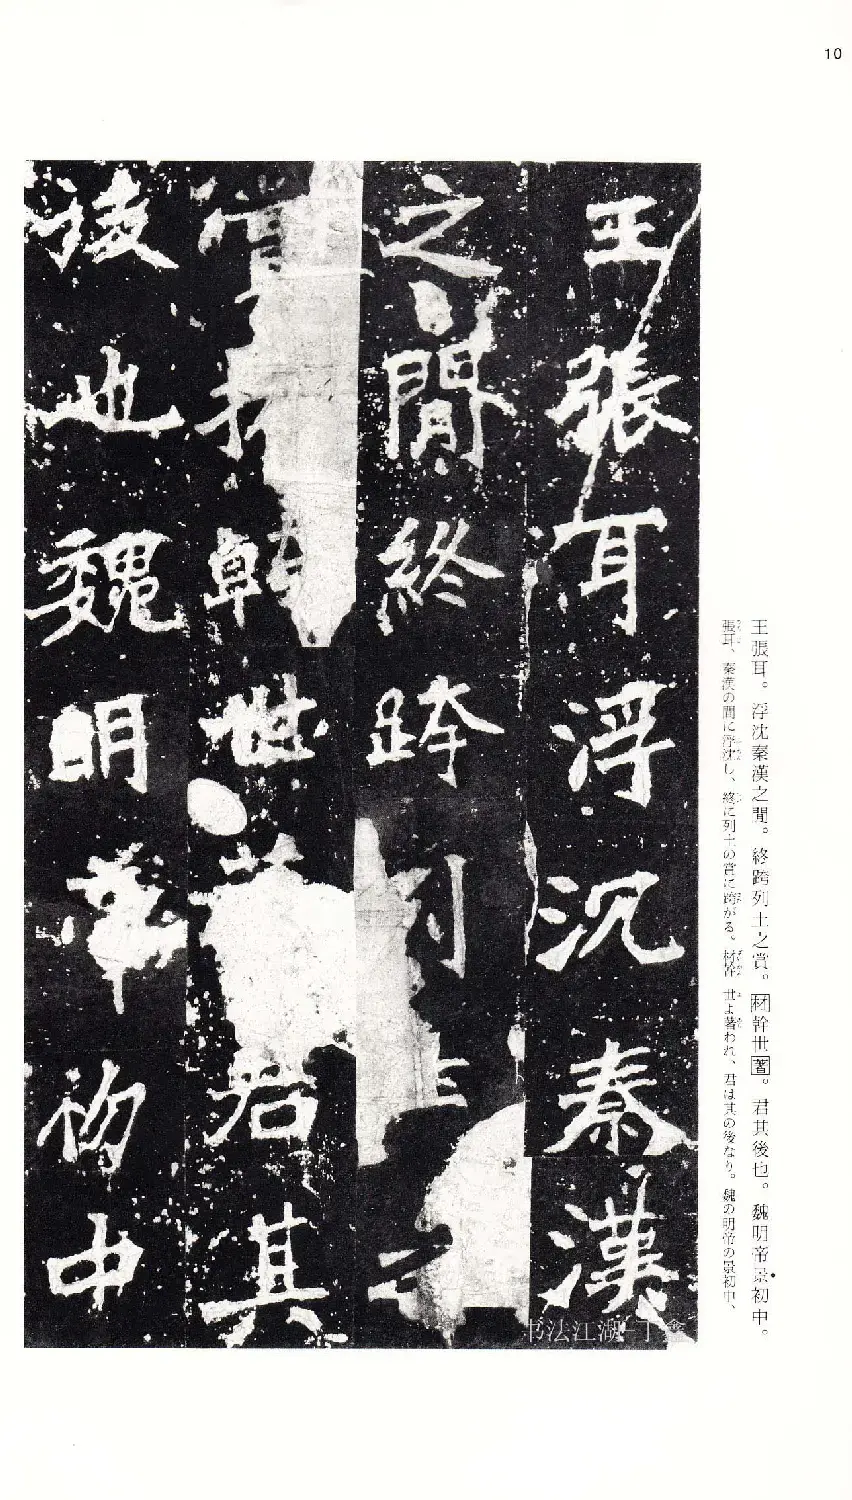 10
王張耳。浮沈秦漢之閒。終跨列土之賞。材幹世著。君其後也。魏明帝景初中。
張耳、秦漢の間に浮沈し、終に列土の賞に跨がる、材幹 世よ著われ、君は其の後なり。魏の明帝の景初中、
王張耳浮沉秦漢
之閒終跨列土之
賞幹世君其
後也魏明帝初中
书法江湖